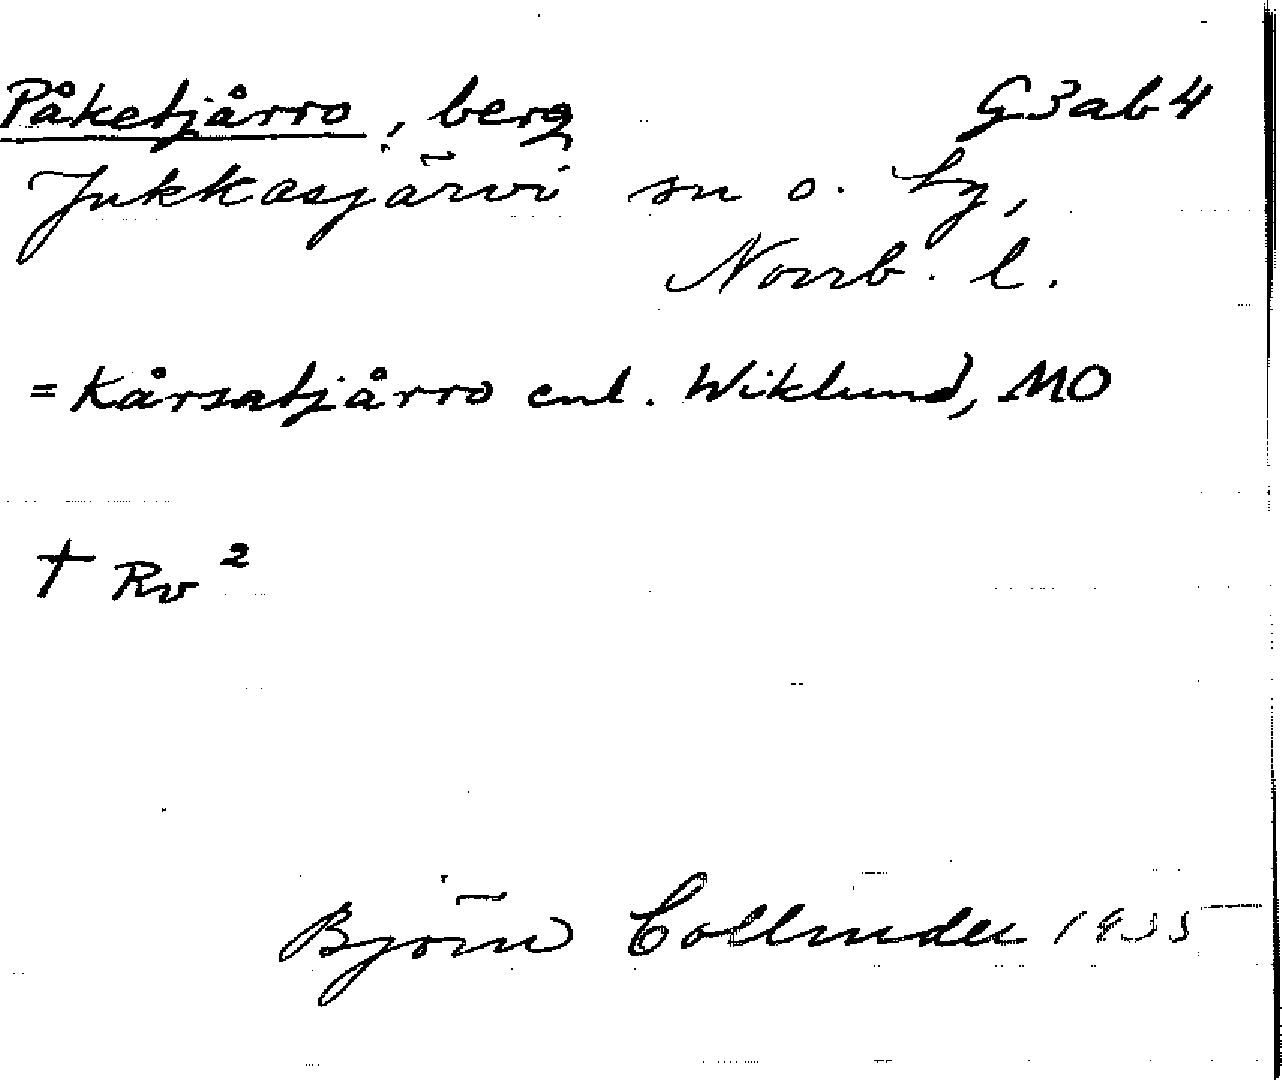 Påketjårro, berg G3ab4
Jukkasjärvi sn o. tg,
Norrb. l.
= Kårsatjårro enl. Wiklund, MO
† Rv ²
Björn Collinder 1935